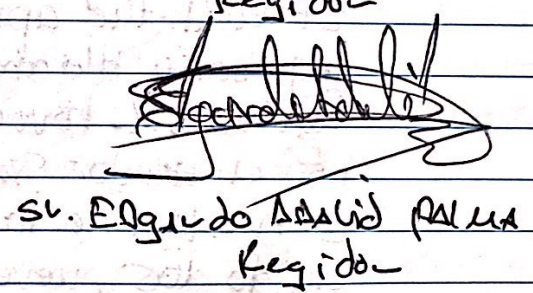 Regidor
Sr. Edgardo Adalid Palma
Regidor